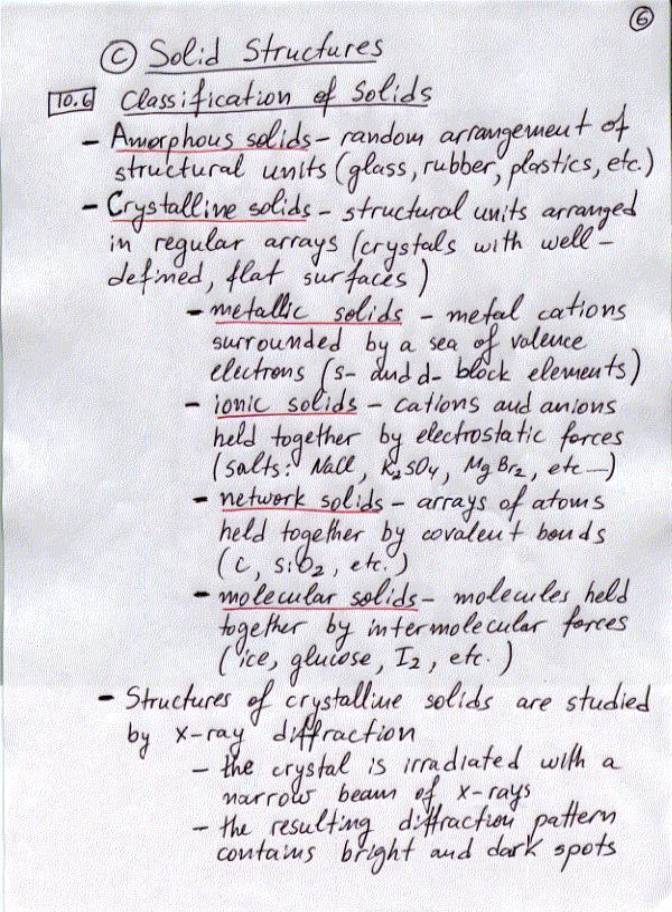 ⑥
Ⓒ Solid Structures
10.6 Classification of Solids
- Amorphous solids - random arrangement of
structural units (glass, rubber, plastics, etc.)
- Crystalline solids - structural units arranged
in regular arrays (crystals with well-
defined, flat surfaces)
- metallic solids - metal cations
surrounded by a sea of valence
electrons (s- and d- block elements)
- ionic solids - cations and anions
held together by electrostatic forces
(salts: NaCl, K₂SO₄, MgBr₂, etc...)
- network solids - arrays of atoms
held together by covalent bonds
(C, SiO₂, etc.)
- molecular solids - molecules held
together by intermolecular forces
(ice, glucose, I₂, etc.)
- Structures of crystalline solids are studied
by x-ray diffraction
- the crystal is irradiated with a
narrow beam of x-rays
- the resulting diffraction pattern
contains bright and dark spots